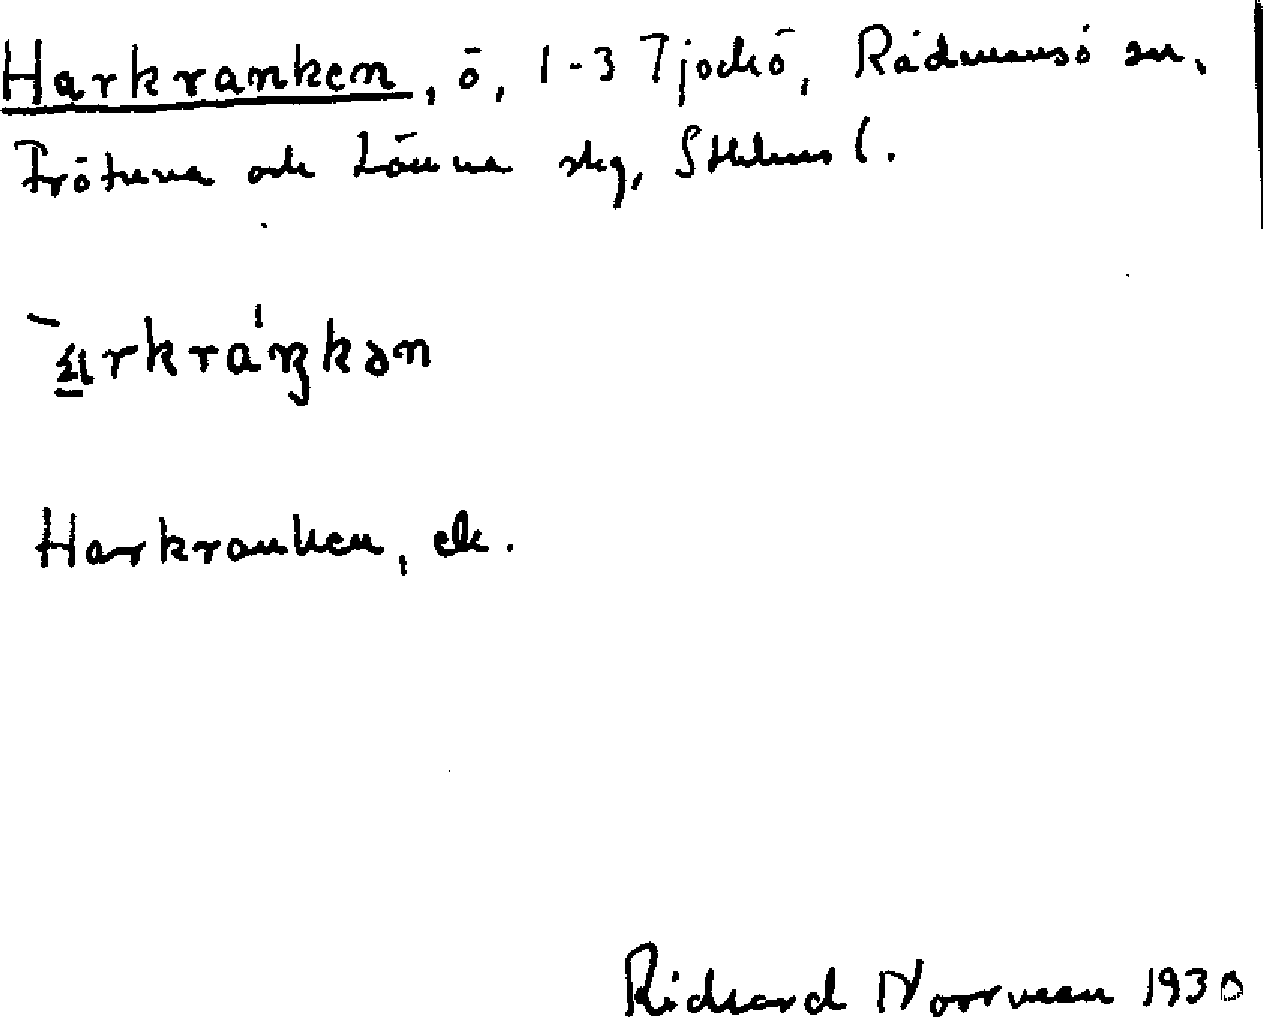 Harkranken, ö, 1-3 Tjockö, Rådmansö sn,
Frötuna och Länna skg, Sthlms l.
Harkranken, ek.
Rickard Norrman 1930